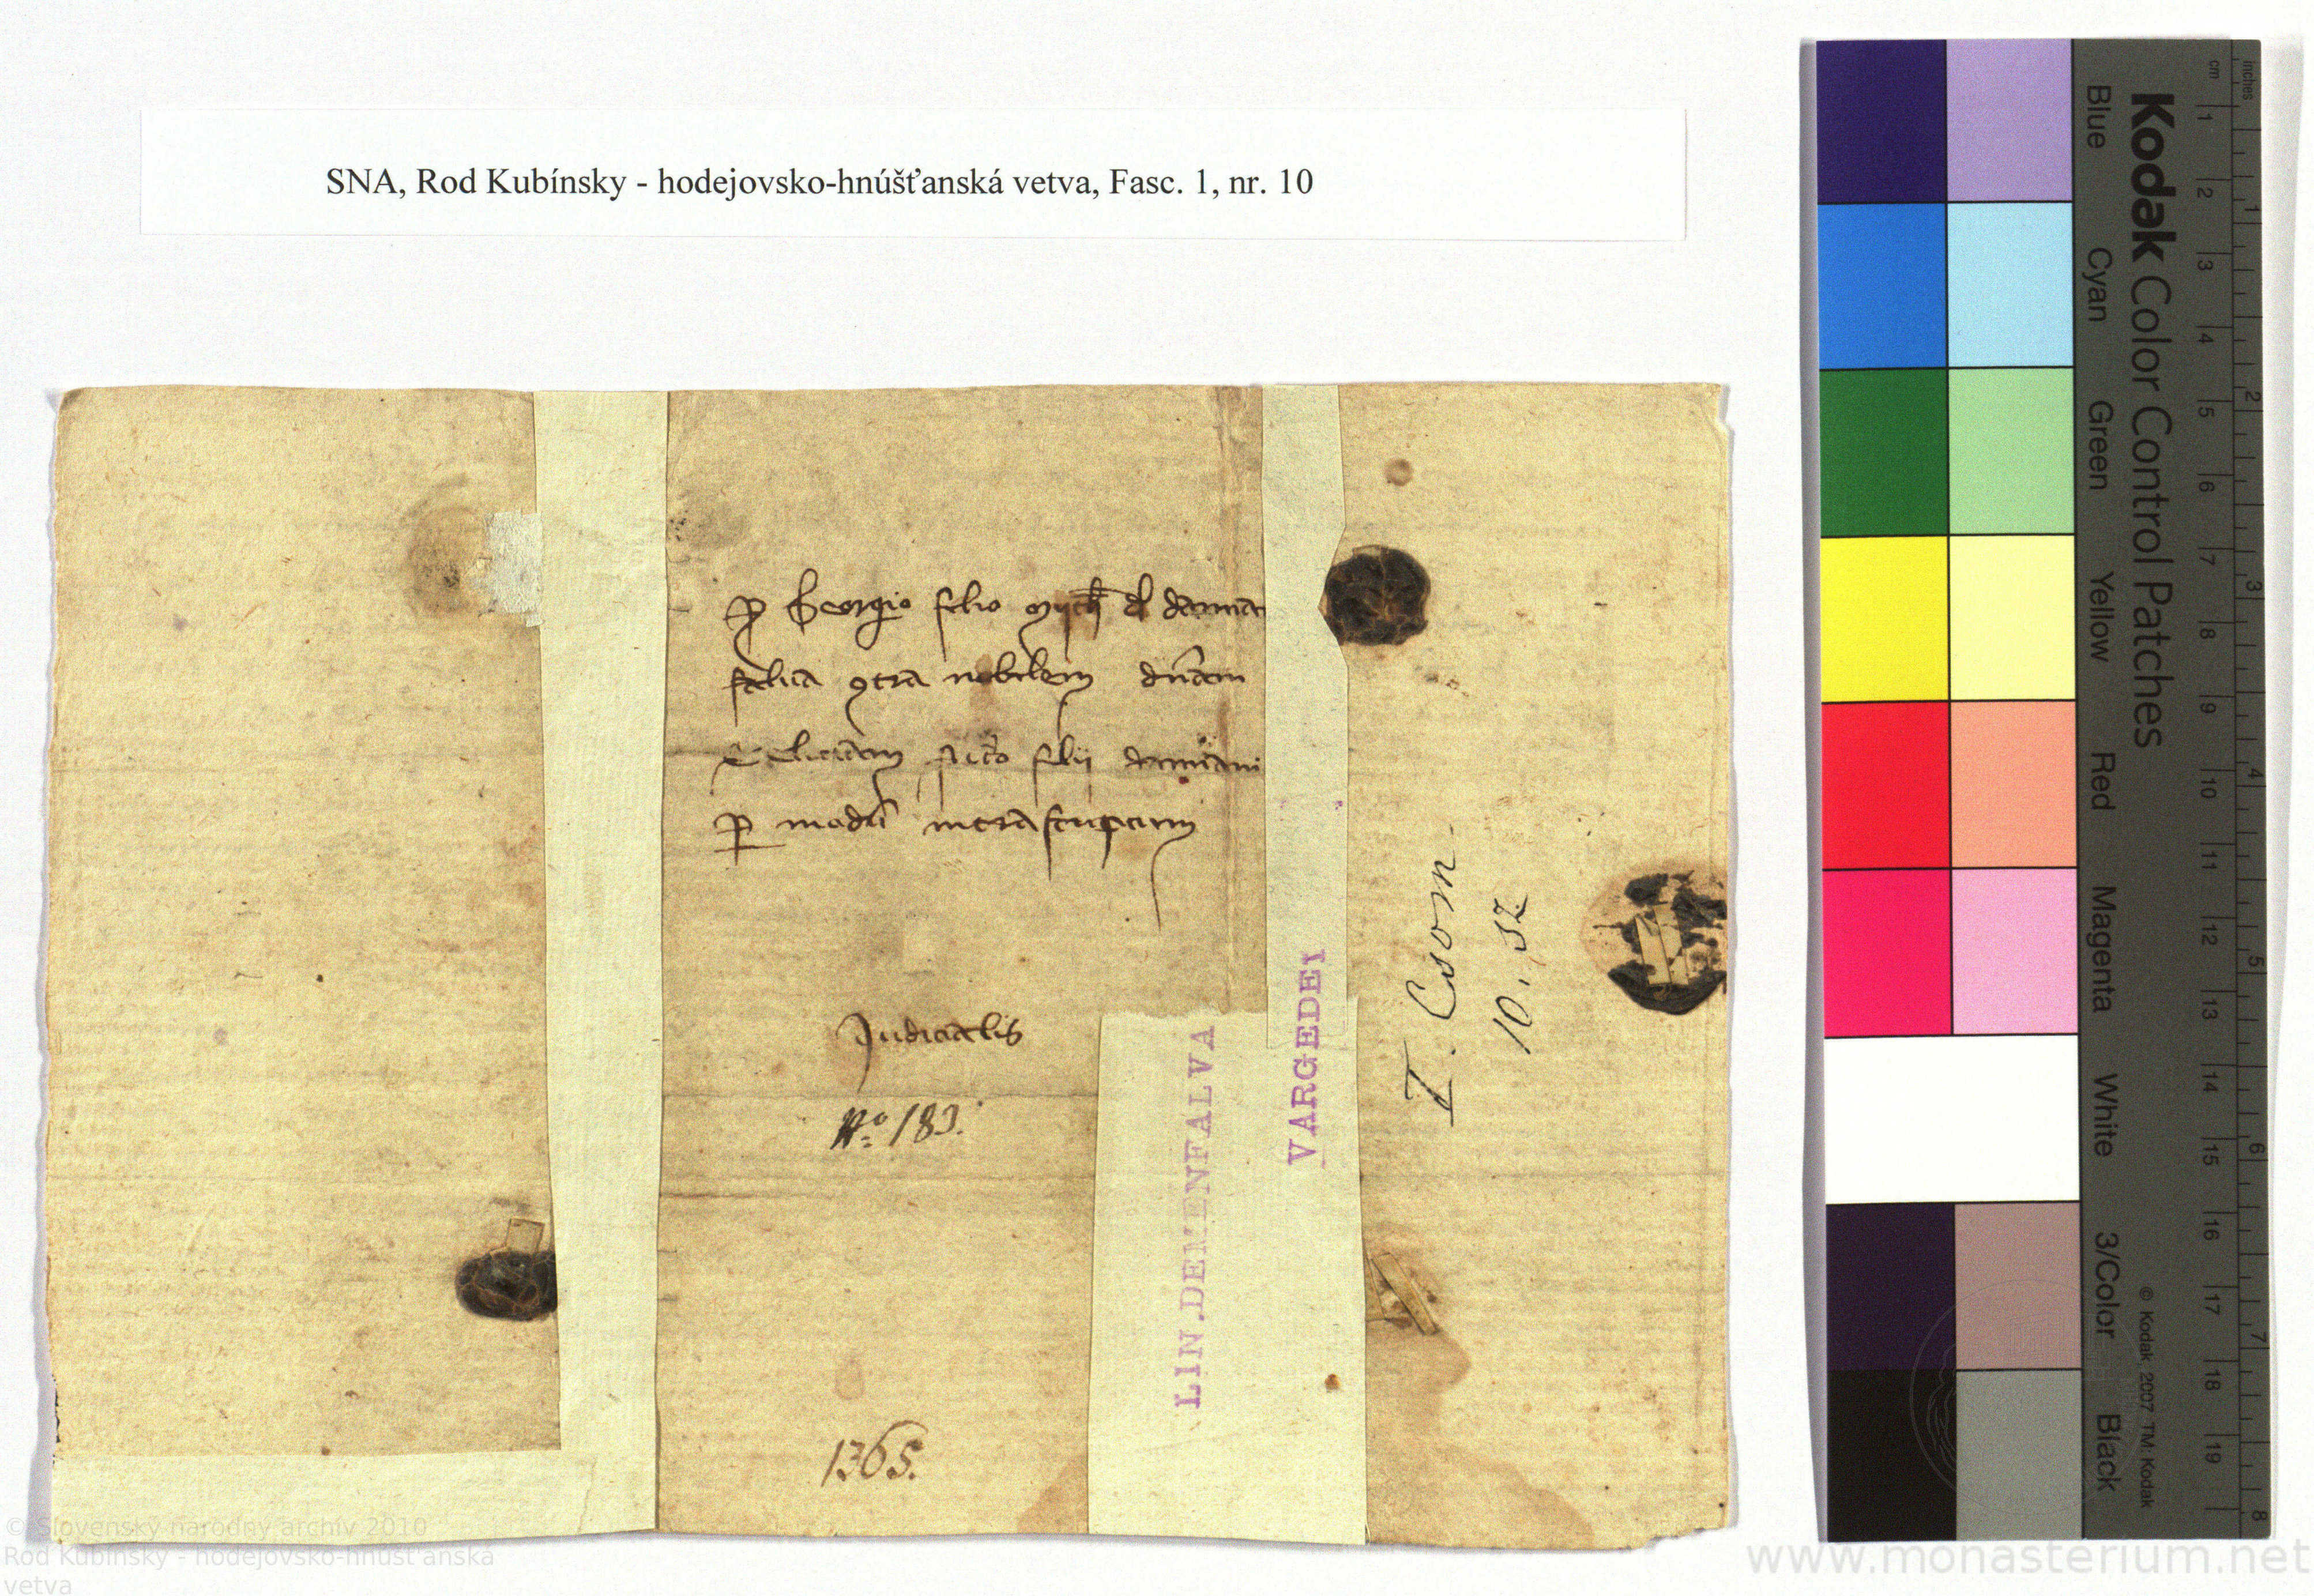 SNA, Rod Kubínsky - hodejovsko-hnúšťanská vetva, Fasc. 1, nr. 10
p Georgio filio mych de
contra nobilem dnam
filii
p modu intrascriptum
Judicialis
No 183.
1365.
LIN.DEMENFALVA
VARGEDEI
I. Csom
10. sz
Kodak Color Control Patches
Blue Cyan Green Yellow Red Magenta White 3/Color Black
© Kodak, 2007 TM: Kodak
cm 1 2 3 4 5 6 7 8 9 10 11 12 13 14 15 16 17 18 19
inches 1 2 3 4 5 6 7 8
© Slovenský národný archív 2010
Rod Kubínsky - hodejovsko-hnúšťanská
vetva
www.monasterium.net